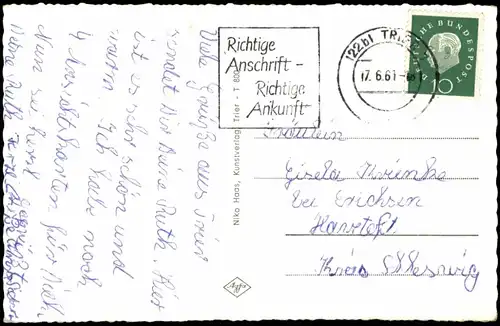 Richtige
Anschrift -
Richtige
Ankunft
(22b) TRIER
17.6.61
DEUTSCHE BUNDESPOST
10
Viele Grüße aus Trier
sendet Dir Deine Ruth. Hier
ist es sehr schön und
warm. Ich habe noch
4 Ansichtskarten für Dich
Nun sei herzl. gegrüßt
Deine Ruth
Niko Haas, Kunstverlag, Trier - T 800
Agfa
Fräulein
Gisela
bei Erichsen
Havetoft
Kreis Schleswig